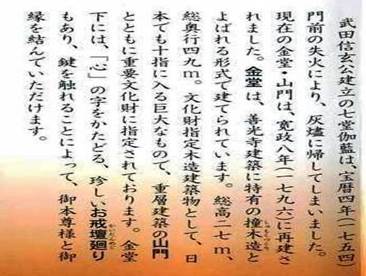 武田信玄公建立の七堂伽藍は、宝暦四年(一七五四)
門前の失火により、灰燼に帰してしまいました。
現在の金堂・山門は、寛政八年(一七九六)に再建さ
れました。金堂は、善光寺建築に特有の撞木造と
よばれる形式で建てられています。総高二七m、
総奥行四九m。文化財指定木造建築物として、日
本でも十指に入る巨大なもので、重層建築の山門
とともに重要文化財に指定されております。金堂
下には、「心」の字をかたどる、珍しいお戒壇廻り
もあり、鍵を触れることによって、御本尊様と御
縁を結んでいただけます。